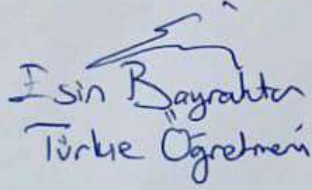 Esin Bayraktar
Türkçe Öğretmeni